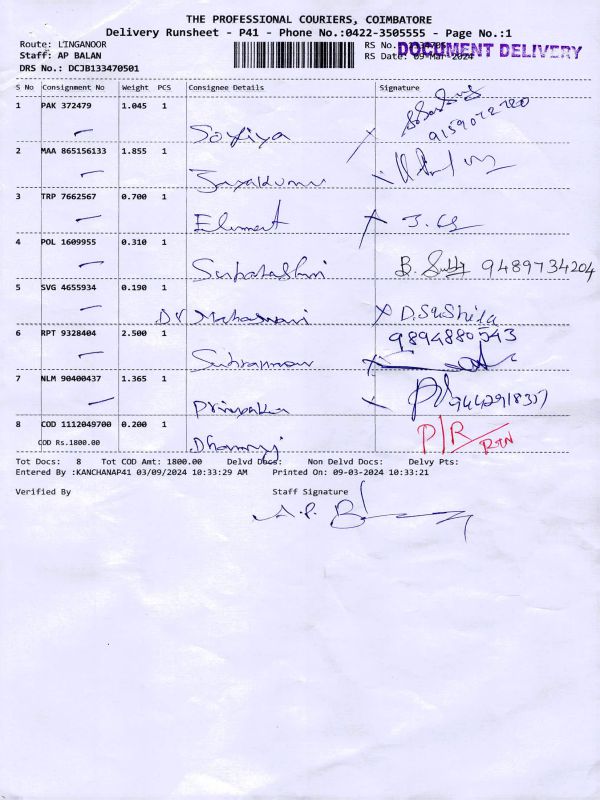 THE PROFESSIONAL COURIERS, COIMBATORE
Delivery Runsheet - P41 - Phone No.:0422-3505555 - Page No.:1
Route: L'INGANOOR
RS No.
DOCUMENT DELIVERY
Staff: AP BALAN
RS Date: 09-Mar-2024
DRS No.: DCJB133470501
S No Consignment No Weight PCS Consignee Details Signature
1 PAK 372479 1.045 1
Sofiya
9159072720
2 MAA 865156133 1.855 1
Jayakumar
3 TRP 7662567 0.700 1
Element
4 POL 1609955 0.310 1
B. 9489734204
5 SVG 4655934 0.190 1
Dr Maheswari D. Sushila
6 RPT 9328404 2.500 1
9894880543
7 NLM 90400437 1.365 1
Priyanka
8 COD 1112049700 0.200 1
P/R
COD Rs.1800.00
Dhanraj
Tot Docs: 8 Tot COD Amt: 1800.00 Delvd Docs: Non Delvd Docs: Delvy Pts:
Entered By :KANCHANAP41 03/09/2024 10:33:29 AM Printed On: 09-03-2024 10:33:21
Verified By Staff Signature
A.P. B